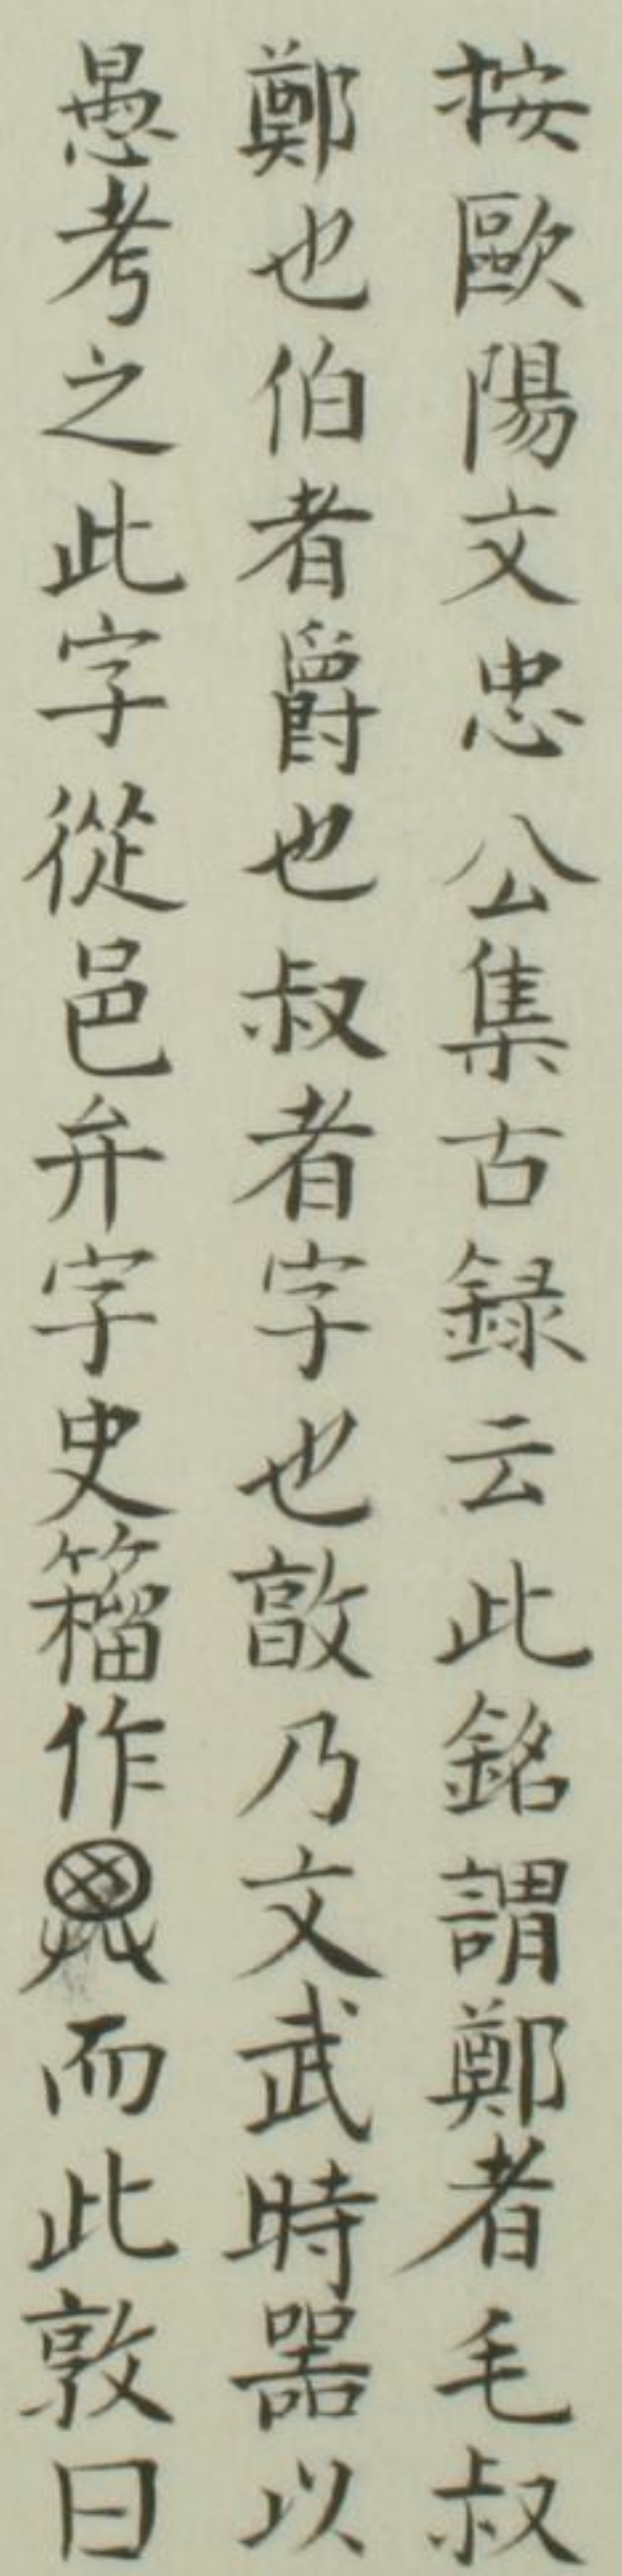 按歐陽文忠公集古録云此銘謂鄭者毛叔
鄭也伯者爵也叔者字也敦乃文武時器以
愚考之此字從邑弁字史籀作而此敦曰